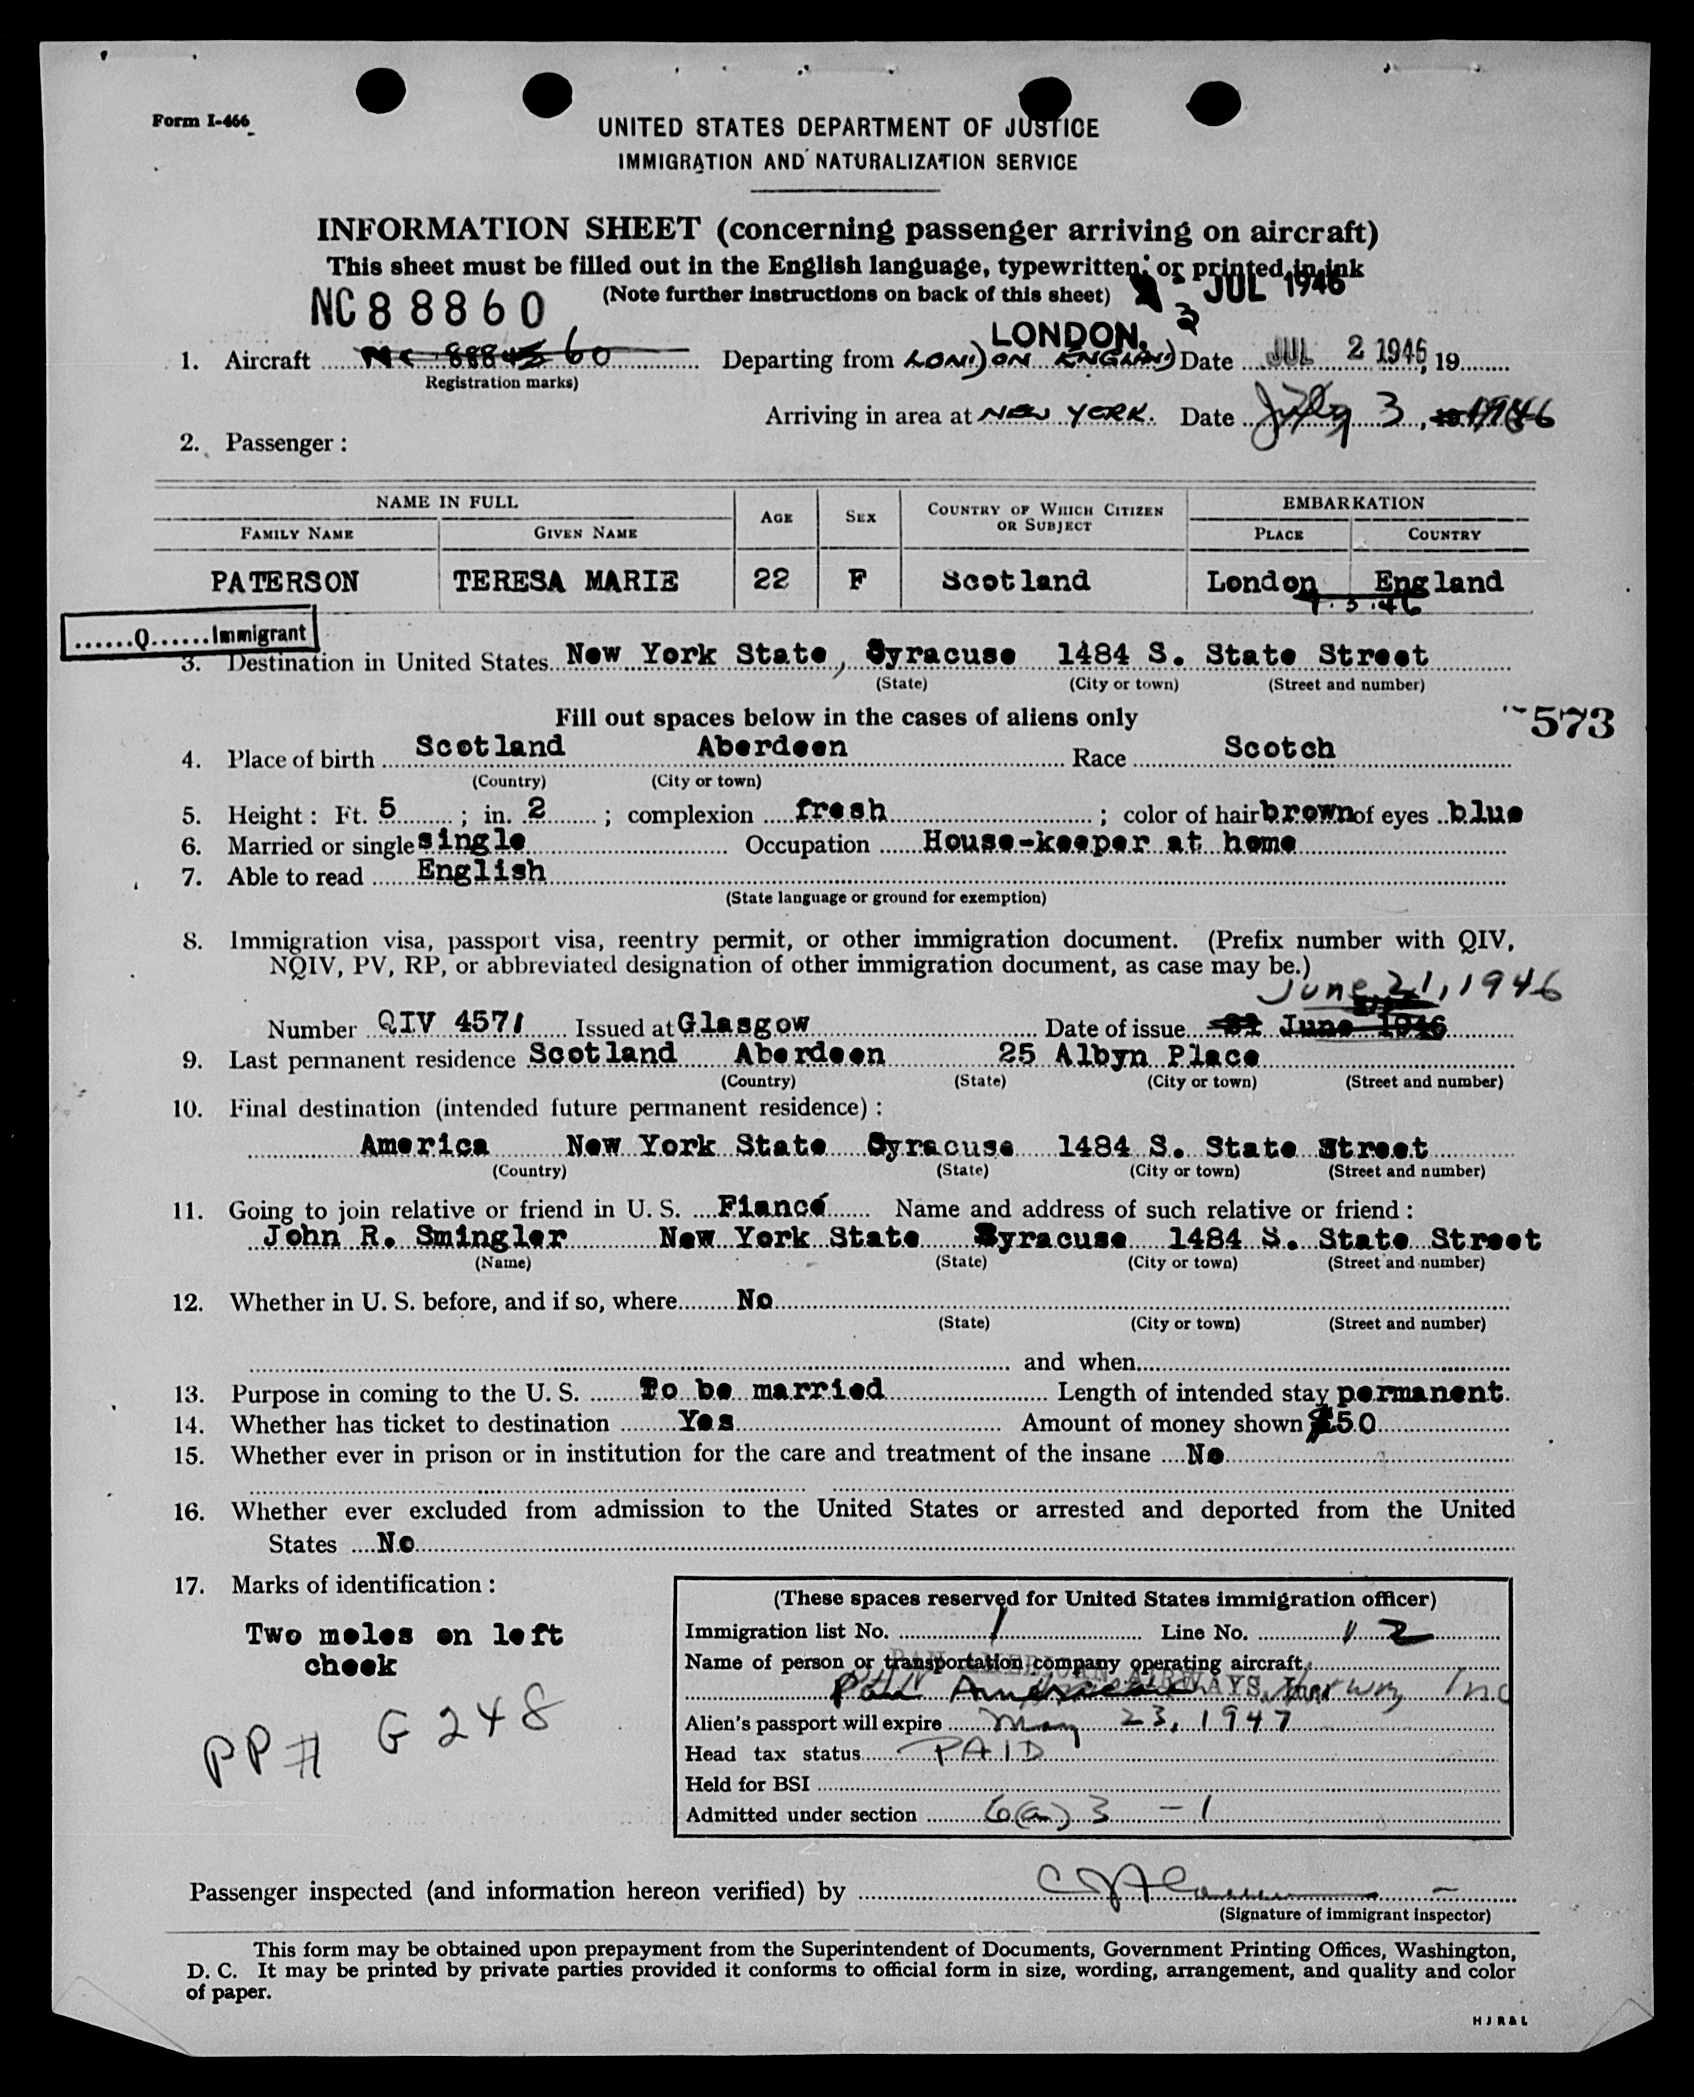 Form I-466
UNITED STATES DEPARTMENT OF JUSTICE
IMMIGRATION AND NATURALIZATION SERVICE
INFORMATION SHEET (concerning passenger arriving on aircraft)
This sheet must be filled out in the English language, typewritten, or printed in ink
NC88860 (Note further instructions on back of this sheet) JUL 1946
LONDON, 3
1. Aircraft NC 888 60 Departing from LONDON ENGLAND Date JUL 2 1946, 19
(Registration marks)
Arriving in area at NEW YORK. Date July 3, 1946
2. Passenger:
NAME IN FULL AGE SEX COUNTRY OF WHICH CITIZEN OR SUBJECT EMBARKATION
FAMILY NAME GIVEN NAME PLACE COUNTRY
PATERSON TERESA MARIE 22 F Scotland London England
7.3.46
......Q......Immigrant
3. Destination in United States New York State, Syracuse 1484 S. State Street
(State) (City or town) (Street and number)
Fill out spaces below in the cases of aliens only
573
4. Place of birth Scotland Aberdeen Race Scotch
(Country) (City or town)
5. Height: Ft. 5; in. 2; complexion fresh; color of hair brown of eyes blue
6. Married or single single Occupation House-keeper at home
7. Able to read English
(State language or ground for exemption)
8. Immigration visa, passport visa, reentry permit, or other immigration document. (Prefix number with QIV,
NQIV, PV, RP, or abbreviated designation of other immigration document, as case may be.)
June 21, 1946
Number QIV 4571 Issued at Glasgow Date of issue June 1946
9. Last permanent residence Scotland Aberdeen 25 Albyn Place
(Country) (State) (City or town) (Street and number)
10. Final destination (intended future permanent residence):
America New York State Syracuse 1484 S. State Street
(Country) (State) (City or town) (Street and number)
11. Going to join relative or friend in U. S. Fiancé Name and address of such relative or friend:
John R. Smingler New York State Syracuse 1484 S. State Street
(Name) (State) (City or town) (Street and number)
12. Whether in U. S. before, and if so, where No
(State) (City or town) (Street and number)
and when
13. Purpose in coming to the U. S. To be married Length of intended stay permanent.
14. Whether has ticket to destination Yes Amount of money shown $50
15. Whether ever in prison or in institution for the care and treatment of the insane No
16. Whether ever excluded from admission to the United States or arrested and deported from the United
States No
17. Marks of identification:
Two moles on left
cheek
PP# G 248
(These spaces reserved for United States immigration officer)
Immigration list No. 1 Line No. 2
Name of person or transportation company operating aircraft
PAN AMERICAN AIRWAYS, Inc.
Pan American Airway Inc
Alien's passport will expire May 23, 1947
Head tax status PAID
Held for BSI
Admitted under section 6(a) 3 - 1
Passenger inspected (and information hereon verified) by
(Signature of immigrant inspector)
This form may be obtained upon prepayment from the Superintendent of Documents, Government Printing Offices, Washington,
D. C. It may be printed by private parties provided it conforms to official form in size, wording, arrangement, and quality and color
of paper.
H J R & L